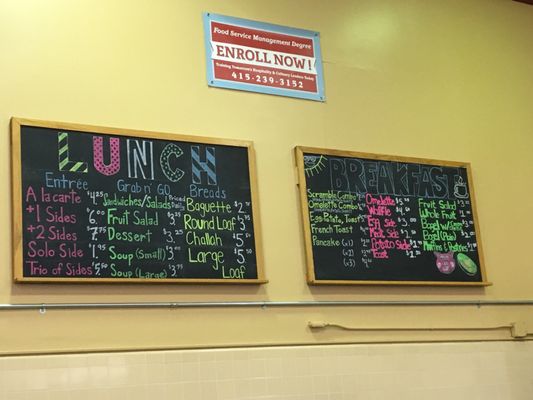 Food Service Management Degree
ENROLL NOW!
Training Tomorrow's Hospitality & Culinary Leaders Today
415-239-3152
LUNCH
Entrée
A la carte $4.25
+1 Sides 6.
+2 Sides 7.75
Solo Side 1.95
Trio of Sides 5.50
Grab n' GO
Sandwiches/Salads Priced Daily
Fruit Salad $3.
Dessert $2.
Soup (Small) $3.
Soup (Large) $3.75
Breads
Baguette $2.
Round Loaf $3.
Challah $5.
Large $5.
Loaf
BREAKFAST
Scramble Combo
Omelette Combo
Egg, Potato, Toast
French Toast
Pancake (x1)
(x2)
(x3)
Omelette
Waffle
Egg Side
Meat Side
Potato Side
Toast
Fruit Salad
Whole Fruit
Bagel w/
Bagel (Plain)
Muffins